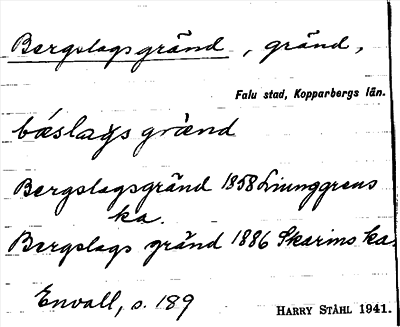 Bergslagsgränd, gränd,
Falu stad, Kopparbergs län.
bæslags grænd
Bergslagsgränd 1858 Liunggrens
ka.
Bergslags gränd 1886 Skarins ka.
Envall, s. 189
HARRY STÅHL 1941.